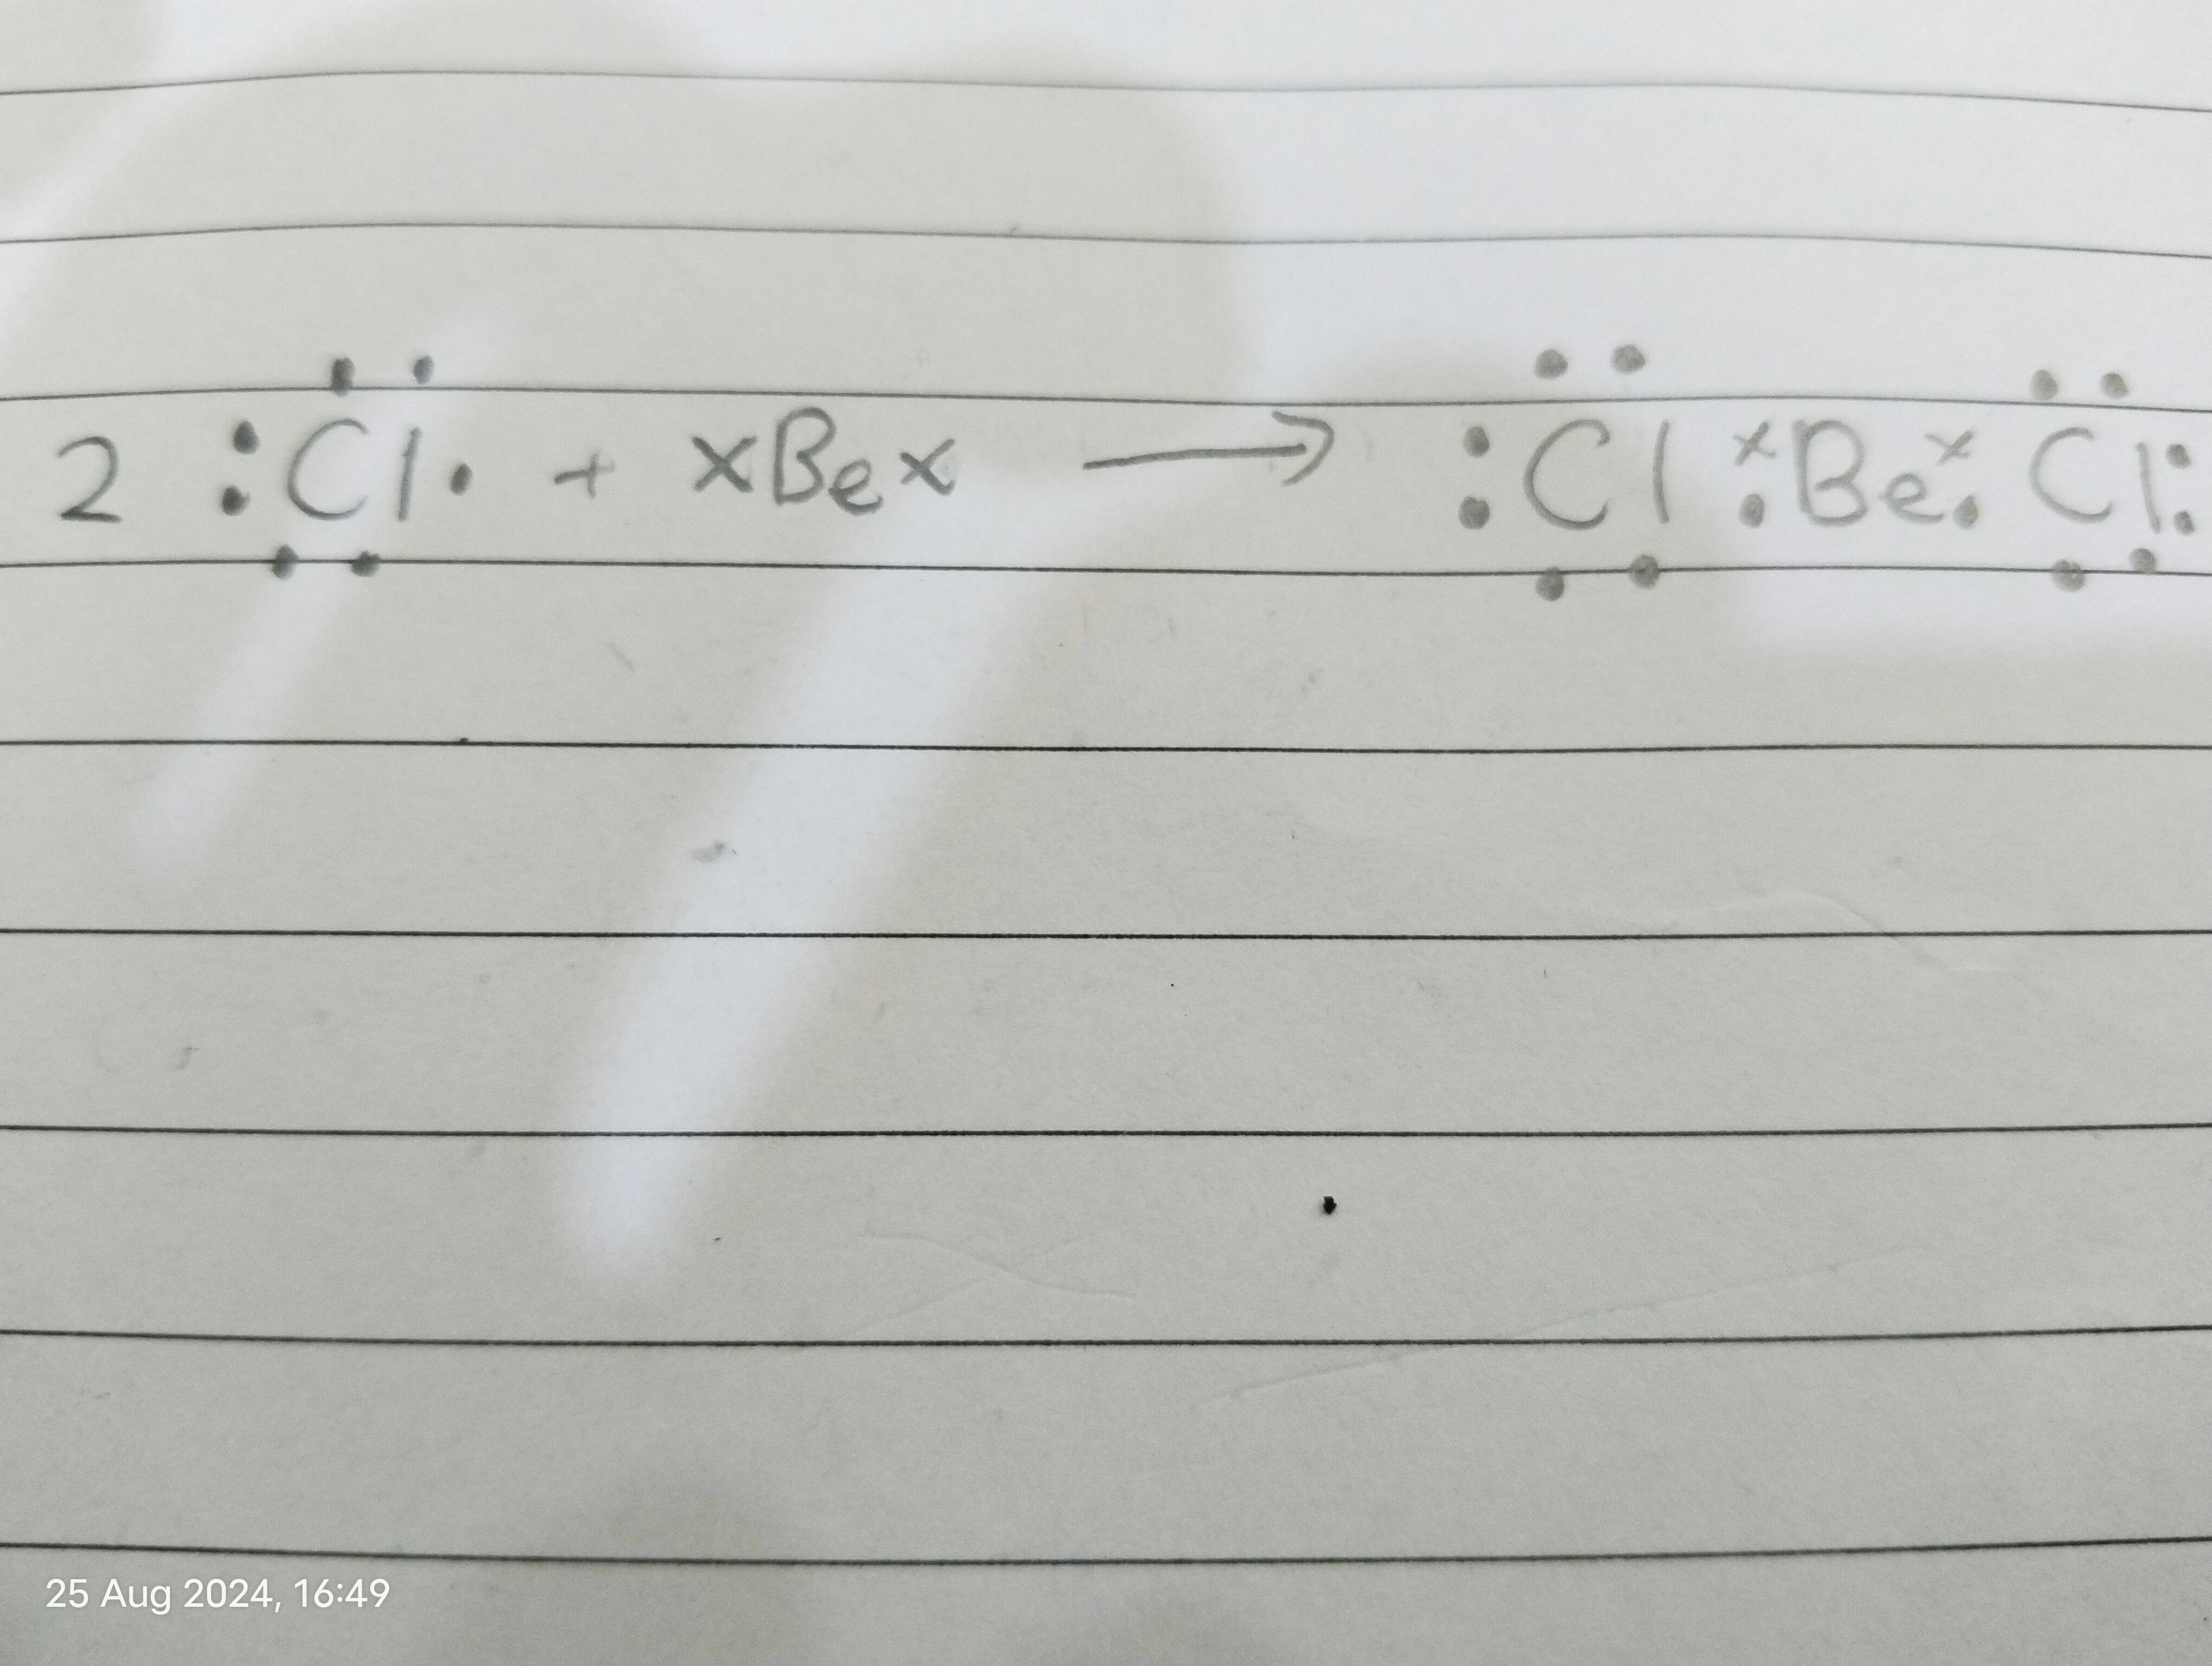 2 :Cl· + xBex → :Cl ẋ Be ẋ Cl:
25 Aug 2024, 16:49